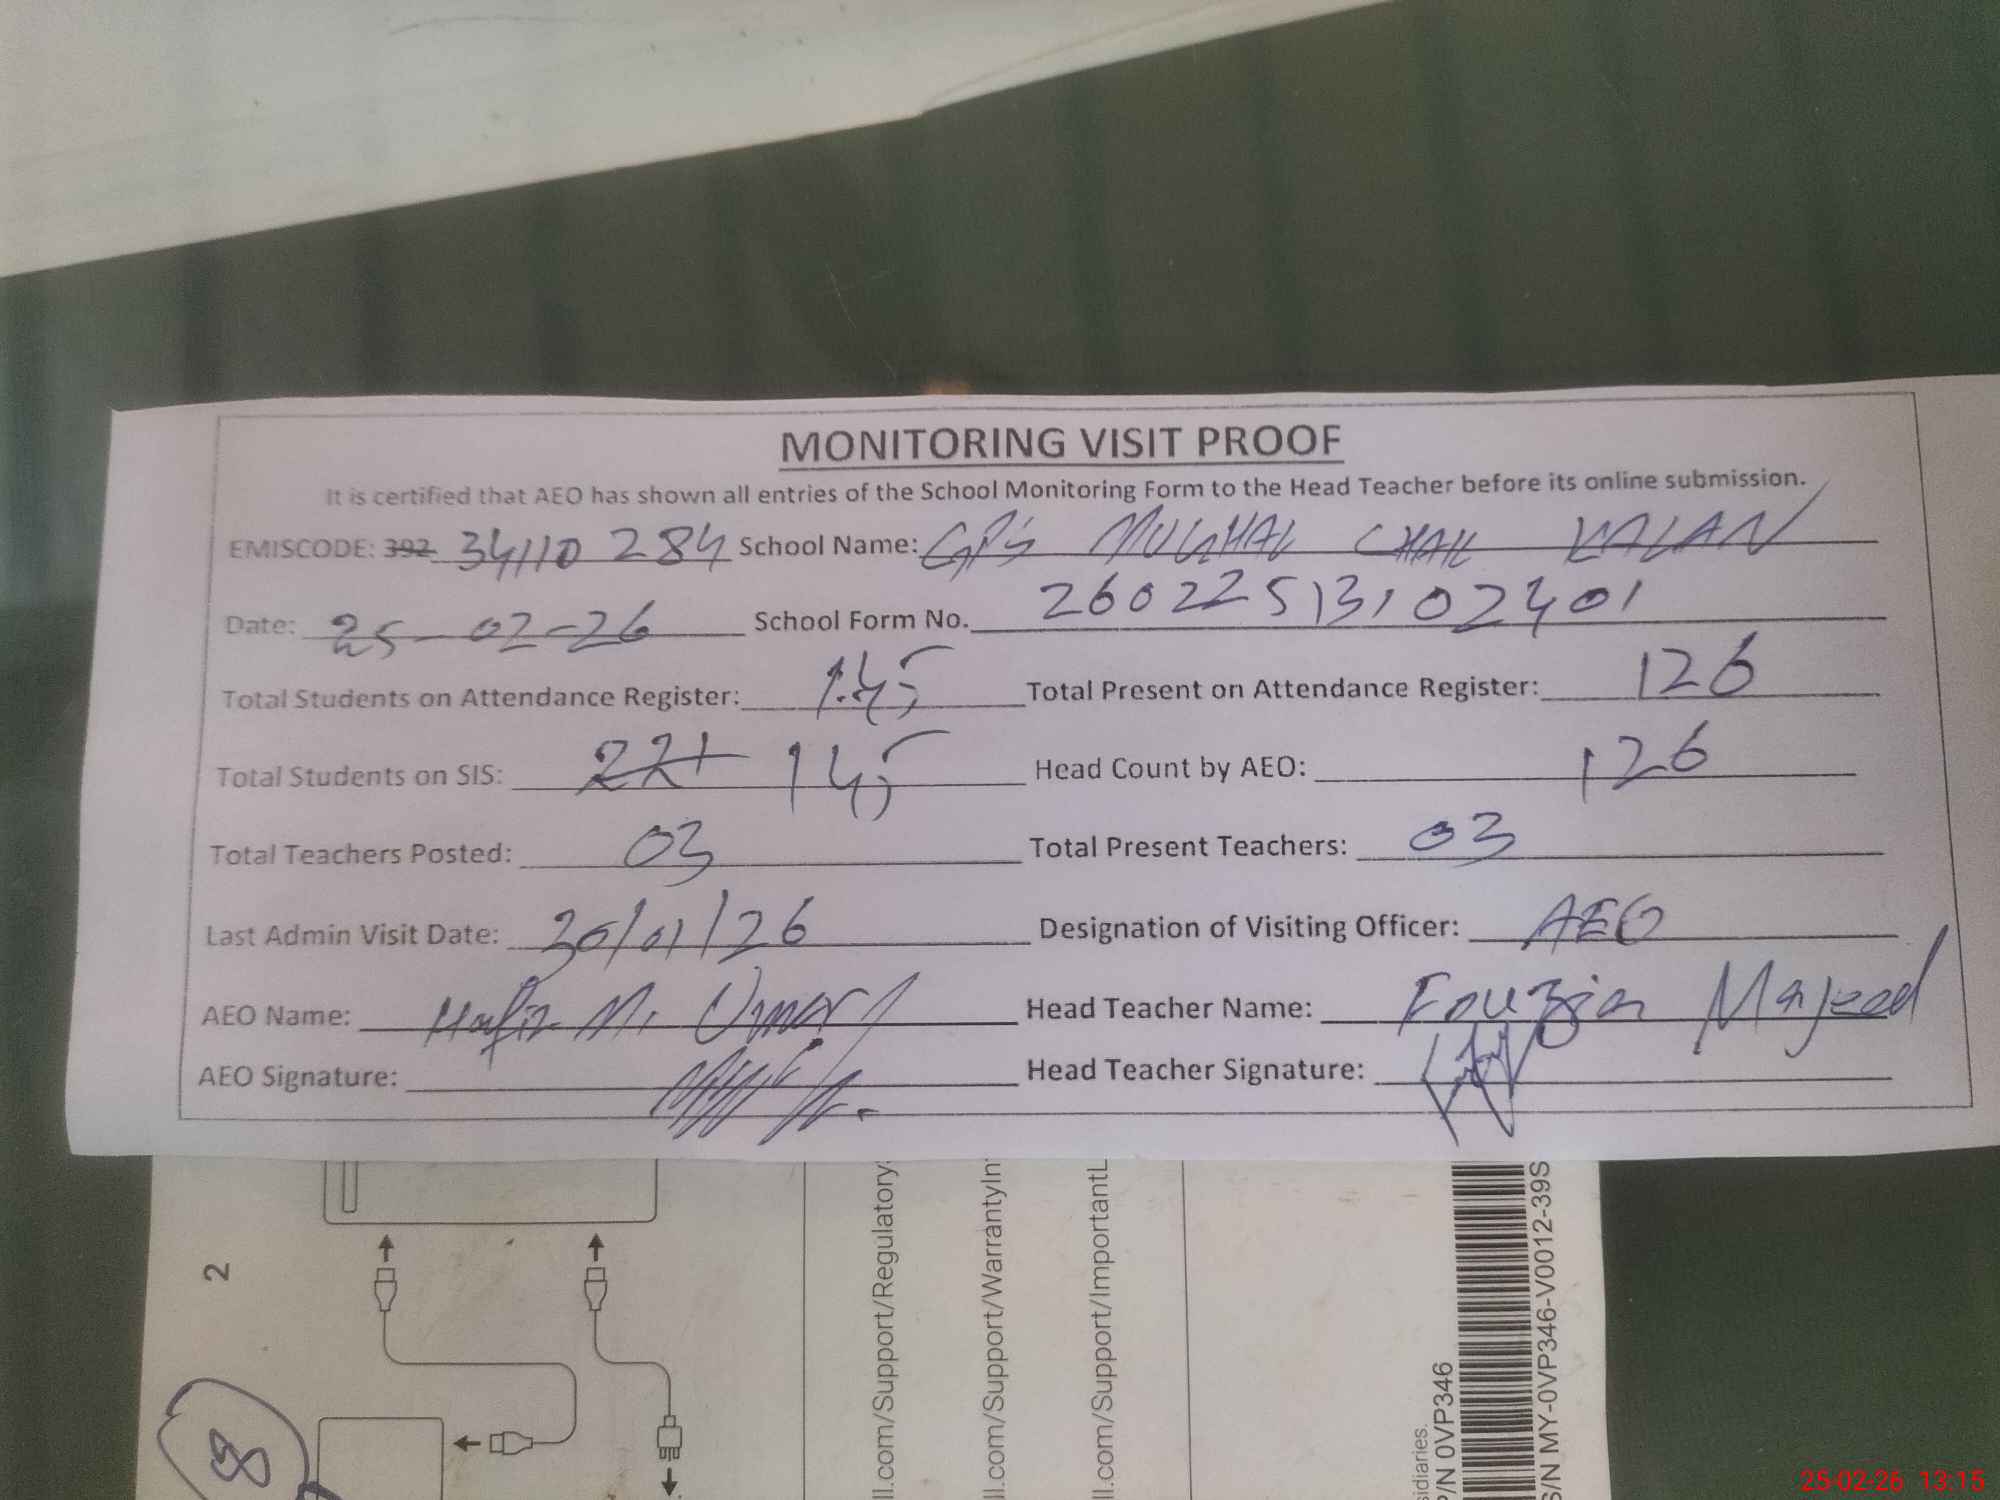 MONITORING VISIT PROOF
It is certified that AEO has shown all entries of the School Monitoring Form to the Head Teacher before its online submission.
EMISCODE: 392 34110 284 School Name: GPS MUGHAL CHAK KALAN
Date: 25-02-26 School Form No. 26022513102401
Total Students on Attendance Register: 145 Total Present on Attendance Register: 126
Total Students on SIS: 221 145 Head Count by AEO: 126
Total Teachers Posted: 03 Total Present Teachers: 03
Last Admin Visit Date: 30/01/26 Designation of Visiting Officer: AEO
AEO Name: Hafiz M. Umar Head Teacher Name: Fouzia Majeed
AEO Signature: Head Teacher Signature:
2
8
ll.com/Support/Regulatory
ll.com/Support/WarrantyIn
ll.com/Support/ImportantL
sidiaries.
P/N 0VP346
S/N MY-0VP346-V0012-39S
25-02-26 13:15